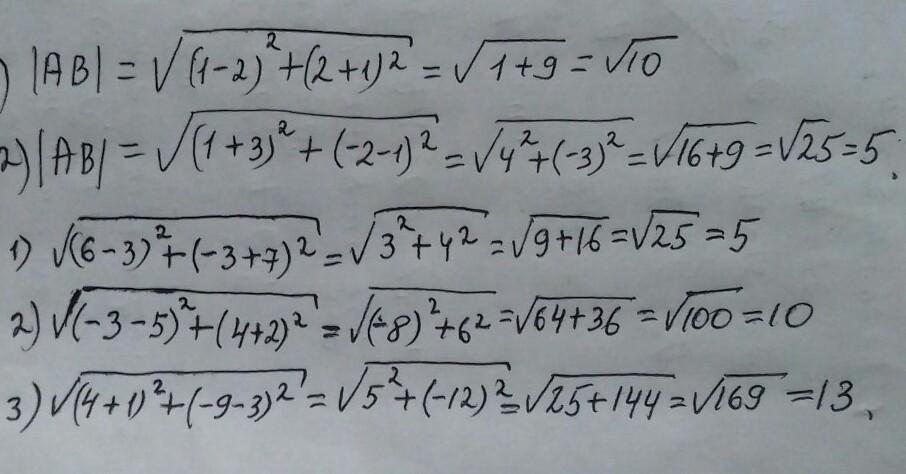 ) |AB| = √(1-2)² + (2+1)² = √1+9 = √10
2) |AB| = √(1+3)² + (-2-1)² = √4² + (-3)² = √16+9 = √25 = 5.
1) √(6-3)² + (-3+7)² = √3² + 4² = √9+16 = √25 = 5
2) √(-3-5)² + (4+2)² = √(-8)² + 6² = √64+36 = √100 = 10
3) √(4+1)² + (-9-3)² = √5² + (-12)² = √25+144 = √169 = 13,